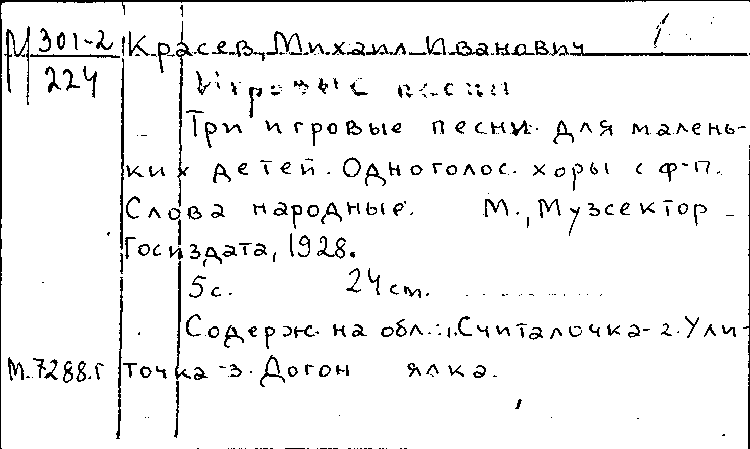 М 301-2 Красев, Михаил Иванович 1
224 Игровые песни
Три игровые песни. для малень-
ких детей. Одноголос. хоры с ф-п.
Слова народные. М., Музсектор
Госиздата, 1928.
5 с. 24 см.
Содерж. на обл.: 1. Считалочка - 2. Ули-
М.7288.г точка - 3. Догон ялка.